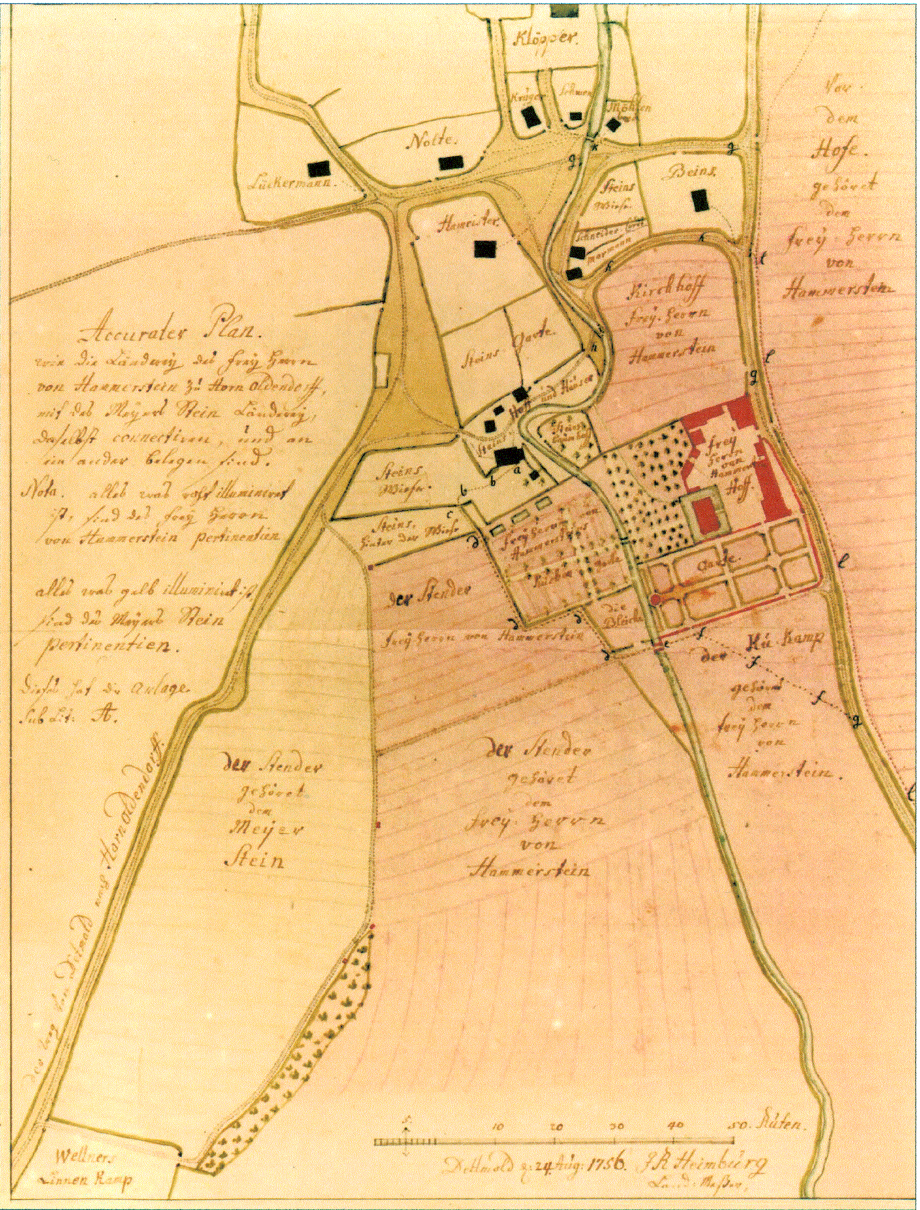 Klöpper.
Krüger
Nolte.
Lückermann.
Beins.
Steins
Wiese
Hameister
Steins Garte.
Hoff und Häuser
Steins
Kirchhoff
frey. Herrn
von
Hammerstein
Vor
dem
Hofe.
gehöret
dem
frey Herrn
von
Hammerstein
Accurater Plan.
wie die Länderey des frey Herrn
von Hammerstein zu Horn Oldendorff,
mit des Meyers Stein Länderey,
daselbst connectiren, und an
ein ander belegen sind.
Nota. alles was roth illuminiret
ist, sind des frey Herrn
von Hammerstein pertinentien
alles was gelb illuminiret ist
sind des Meyers Stein
pertinentien.
Dieses hat die Anlage
sub Lit: A.
Steins
Wiese.
Steins
hinter der Wiese
frey
Herrn
von
Hammer
Hoff
frey Herrn von
Hammerstein
Garte
Garte
die
Bleiche
der Stender
frey Herrn von Hammerstein
der Kü Kamp
gehöret
dem
frey Herrn
von
Hammerstein.
der Stender
gehöret
dem
Meyer
Stein
der Stender
gehöret
dem
frey Herrn
von
Hammerstein
der Weg von Detmold nach Harnoldendorff.
Wellners
Linnen Kamp
5 10 20 30 40 50. Ruten.
Dettmold d. 24 Aug: 1756. J R Heimburg
Land-Meßer,
a
b
b
c
d
d
d
d
e
f
f
f
g
g
g
g
h
i
k
k
k
l
l
l
l